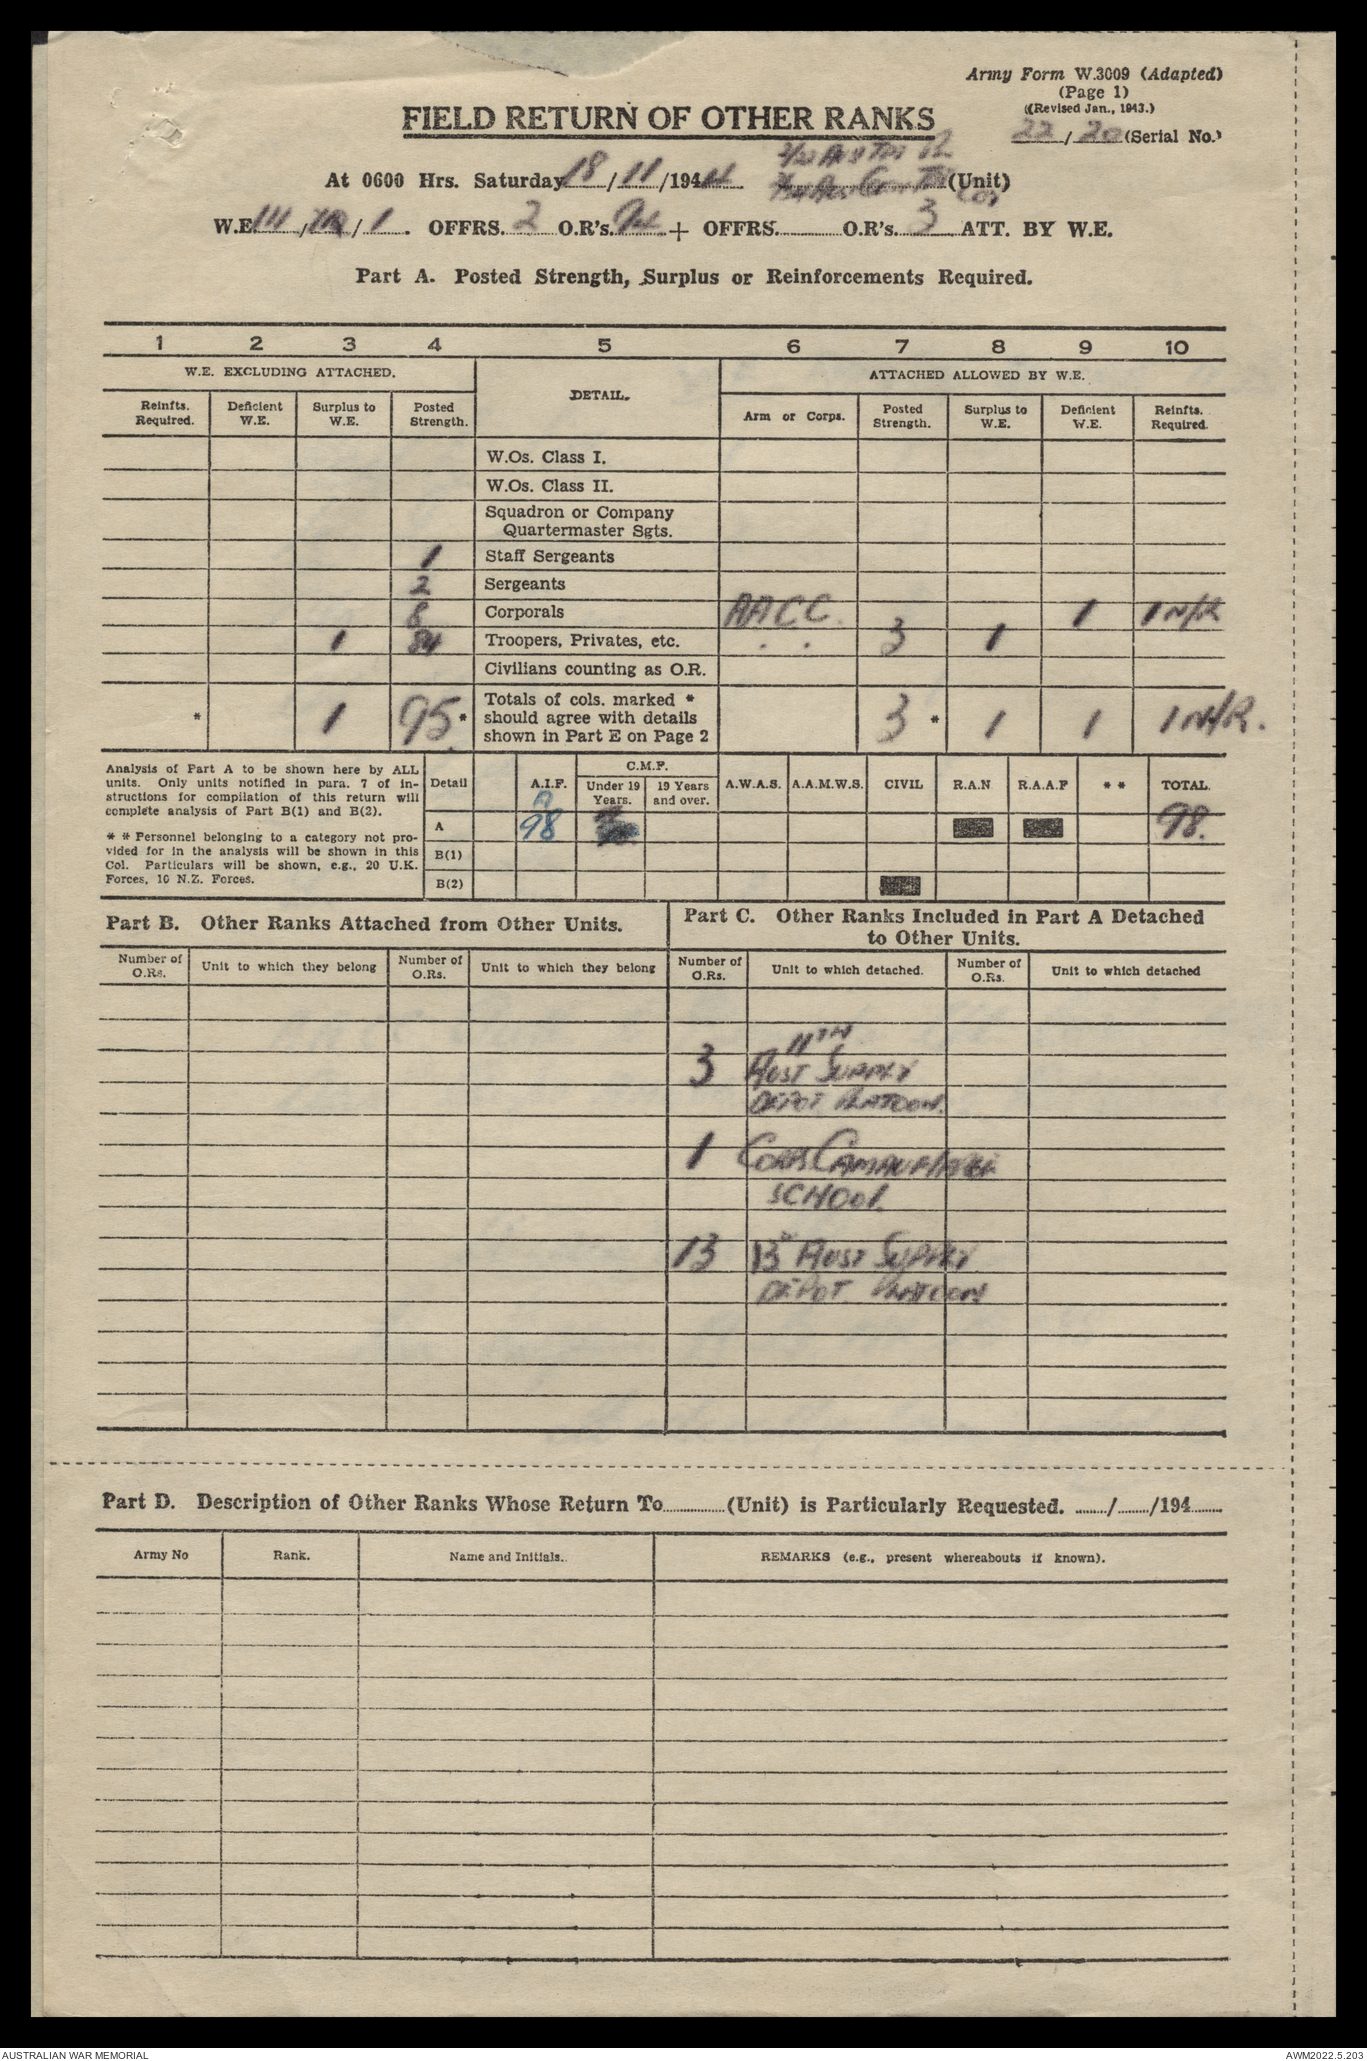 Army Form W.3009 (Adapted)
(Page 1)
((Revised Jan., 1943.)
22/20 (Serial No.)
FIELD RETURN OF OTHER RANKS
At 0600 Hrs. Saturday 18/11/1944 (Unit)
W.E. 111/ /1. OFFRS. 2 O.R's. 94 + OFFRS. O.R's. 3 ATT. BY W.E.
Part A. Posted Strength, Surplus or Reinforcements Required.
1 2 3 4 5 6 7 8 9 10
W.E. EXCLUDING ATTACHED. DETAIL. ATTACHED ALLOWED BY W.E.
Reinfts. Required. Deficient W.E. Surplus to W.E. Posted Strength. Arm or Corps. Posted Strength. Surplus to W.E. Deficient W.E. Reinfts. Required.
W.Os. Class I.
W.Os. Class II.
Squadron or Company
Quartermaster Sgts.
1 Staff Sergeants
2 Sergeants
8 Corporals AACC. 1 1 N/R
1 84 Troopers, Privates, etc. . . 3 1
Civilians counting as O.R.
* 1 95* Totals of cols. marked *
should agree with details
shown in Part E on Page 2 3 * 1 1 1 N/R.
Analysis of Part A to be shown here by ALL
units. Only units notified in para. 7 of in-
structions for compilation of this return will
complete analysis of Part B(1) and B(2).
* * Personnel belonging to a category not pro-
vided for in the analysis will be shown in this
Col. Particulars will be shown, e.g., 20 U.K.
Forces, 10 N.Z. Forces.
Detail A.I.F. C.M.F. Under 19 Years. 19 Years and over. A.W.A.S. A.A.M.W.S. CIVIL R.A.N R.A.A.F * * TOTAL.
A 98 98.
B(1)
B(2)
Part B. Other Ranks Attached from Other Units.
Number of O.Rs. Unit to which they belong Number of O.Rs. Unit to which they belong
Part C. Other Ranks Included in Part A Detached
to Other Units.
Number of O.Rs. Unit to which detached. Number of O.Rs. Unit to which detached
11TH
3 AUST SUPPLY
DEPOT PLATOON.
1 CORPS CAMAUFLAGE
SCHOOL.
13 13 AUST SUPPLY
DEPOT PLATOON
Part D. Description of Other Ranks Whose Return To (Unit) is Particularly Requested. / /194
Army No Rank. Name and Initials. REMARKS (e.g., present whereabouts if known).
AUSTRALIAN WAR MEMORIAL
AWM2022.5.203